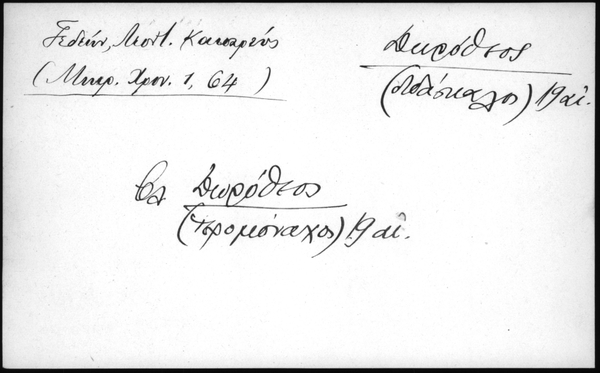 Γεδεών, Λεοντ. Καισαρεύς
(Μικρ. Χρον. 1, 64)
Δωρόθεος
(διδάσκαλος) 19 αἰ.
Βλ Δωρόθεος
(Ἱερομόναχος) 19 αἰ.